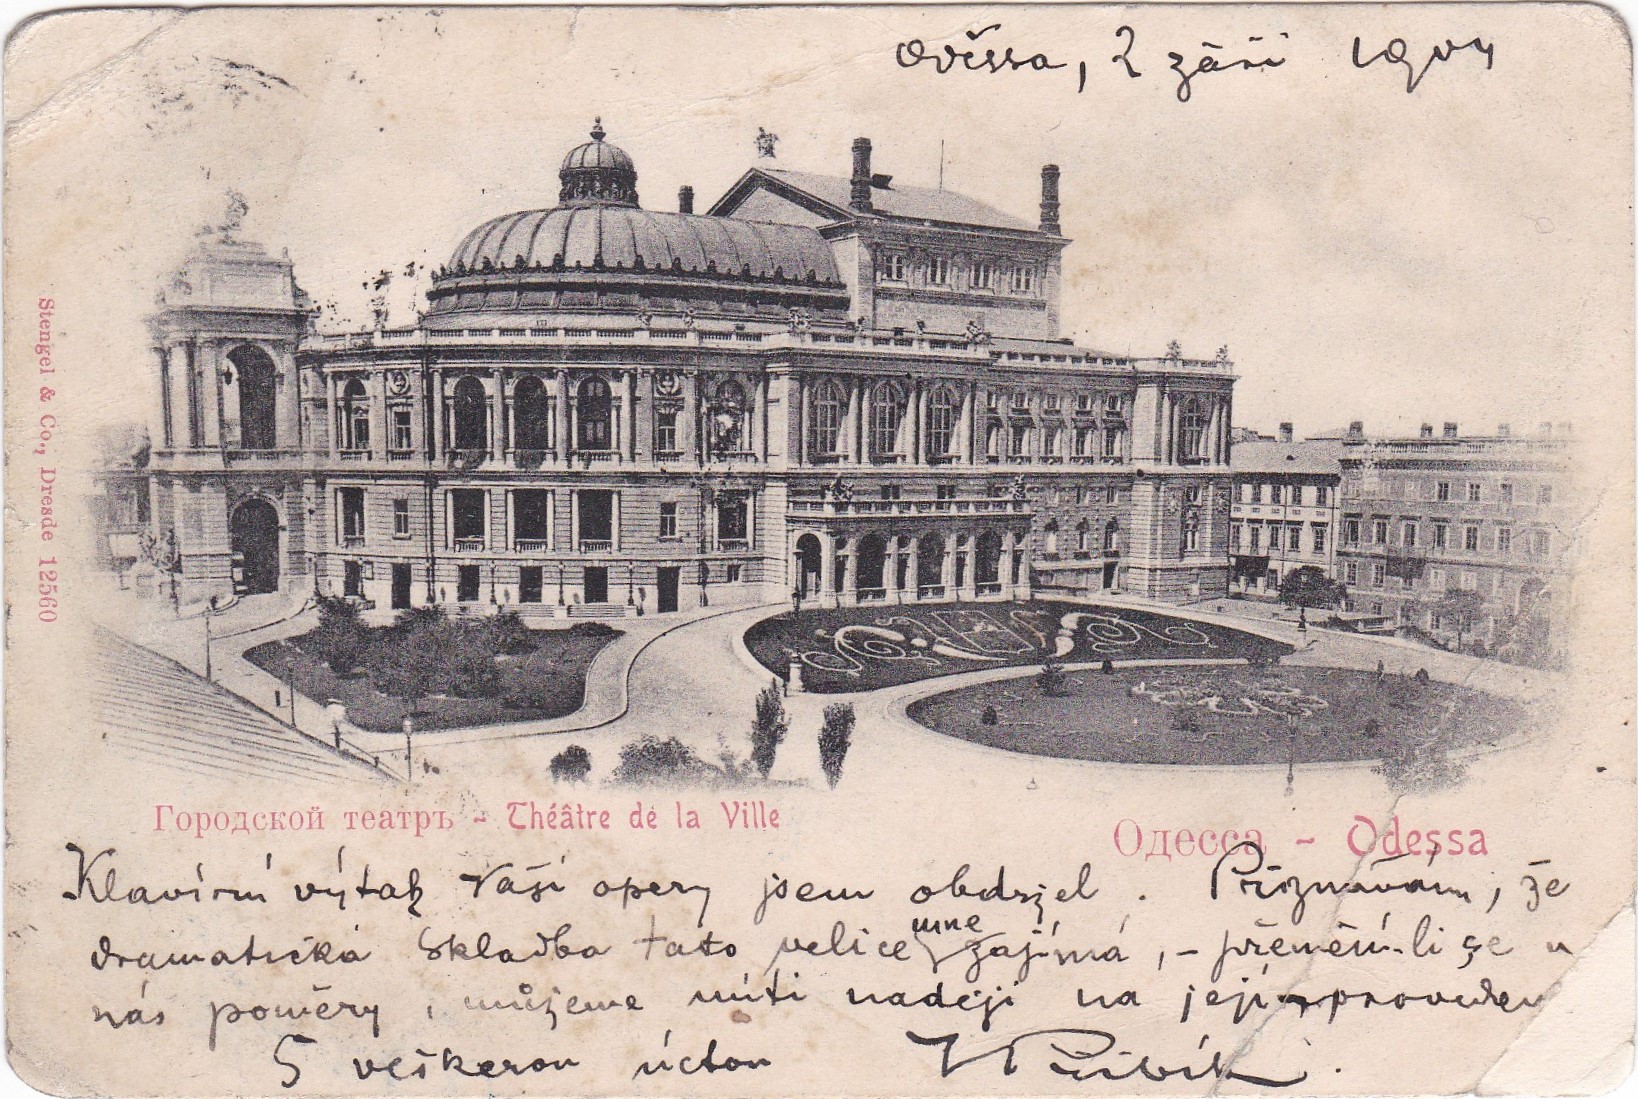 Oděssa, 2 září 1904
Stengel & Co., Dresde 12560
Городской театръ - Théâtre de la Ville
Одесса - Odessa
Klavírní výtah Vaší opery jsem obdržel. Přiznávám, že
dramatická skladba tato velice mne zajímá, - přemění-li se u
nás poměry, můžeme míti naději na její provedení
S veškerou úctou JPřibík.